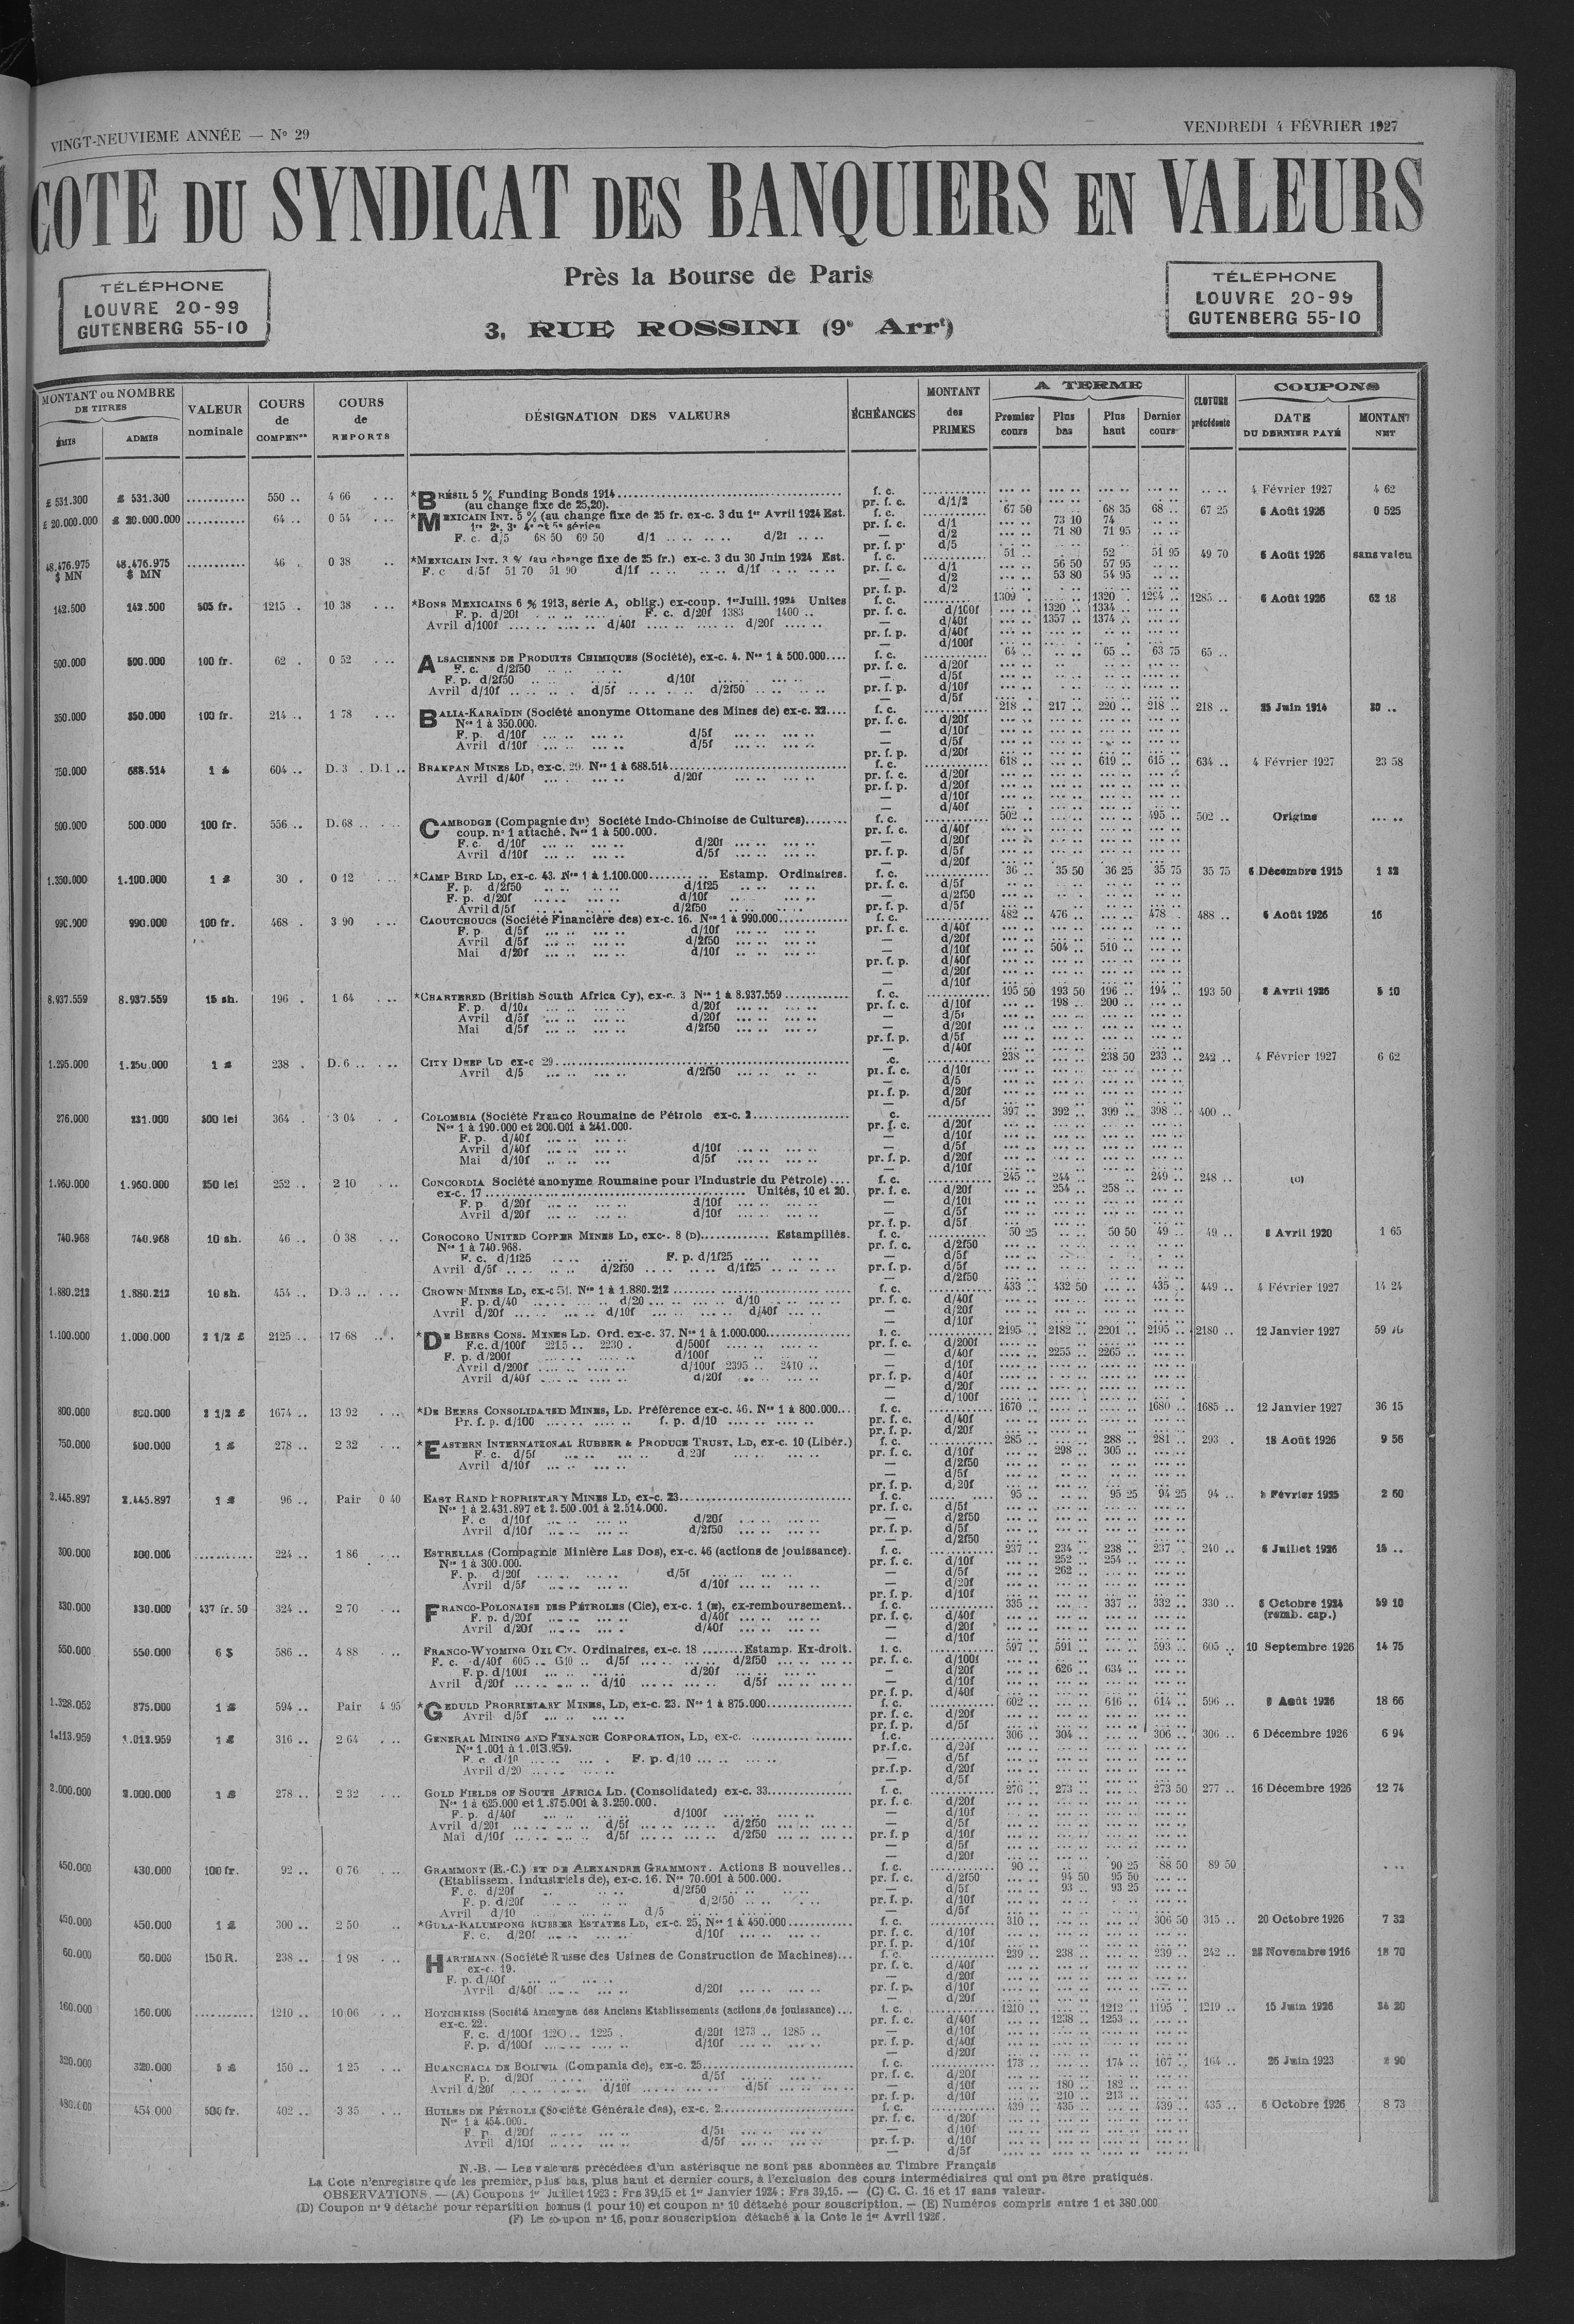 VINGT-NEUVIEME ANNÉE — N° 29
VENDREDI 4 FÉVRIER 1927
COTE DU SYNDICAT DES BANQUIERS EN VALEURS
Près la Bourse de Paris
3, RUE ROSSINI (9e Arrt)
TÉLÉPHONE
LOUVRE 20-99
GUTENBERG 55-10
TÉLÉPHONE
LOUVRE 20-99
GUTENBERG 55-10
MONTANT ou NOMBRE DE TITRES
ÉMIS ADMIS
VALEUR nominale
COURS de COMPENon
COURS de REPORTS
DÉSIGNATION DES VALEURS
ÉCHÉANCES
MONTANT des PRIMES
A TERME
Premier cours Plus bas Plus haut Dernier cours
CLOTURE précédente
COUPONS
DATE DU DERNIER PAYÉ
MONTANT NET
£ 531.300 £ 531.300 ........... 550 .. 4 66 *BRÉSIL 5 % Funding Bonds 1914 f. c. 4 Février 1927 4 62
(au change fixe de 25,20). pr. f. c. d/1/2
£ 20.000.000 £ 20.000.000 ........... 64 .. 0 54 *MEXICAIN INT. 5 % (au change fixe de 25 fr. ex-c. 3 du 1er Avril 1924 Est. f. c. 67 50 68 35 68 .. 67 25 6 Août 1926 0 525
1re 2e, 3e 4e et 5e séries pr. f. c. d/1 73 10 74
F. c. d/5 68 50 69 50 d/1 .. .. .. .. d/21 .. .. — d/2 71 80 71 95
pr. f. p. d/5
48.476.975 $ MN 48.476.975 $ MN ........... 46 . 0 38 *MEXICAIN INT. 3 % (au change fixe de 25 fr.) ex-c. 3 du 30 Juin 1924 Est. f. c. 51 .. 52 51 95 49 70 6 Août 1926 sans valeu
F. c d/5f 51 70 51 90 d/1f .. .. .. .. d/1f .. .. .. .. pr. f. c. d/1 56 50 57 95
— d/2 53 80 54 95
pr. f. p. d/2
142.500 142.500 505 fr. 1215 .. 10 38 *BONS MEXICAINS 6 % 1913, série A, oblig.) ex-coup. 1er Juill. 1924 Unites f. c. 1309 . 1320 . 1294 .. 1285 .. 6 Août 1926 62 18
F. p. d/20f F. c. d/20f 1383 1400 .. pr. f. c. d/100f 1320 .. 1334 ..
Avril d/100f d/40f d/20f — d/40f 1357 .. 1374 ..
pr. f. p. d/40f
— d/100f
500.000 500.000 100 fr. 62 . 0 52 ALSACIENNE DE PRODUITS CHIMIQUES (Société), ex-c. 4. Nos 1 à 500.000 f. c. 64 .. 65 .. 63 75 65 ..
F. c. d/2f50 pr. f. c. d/20f
F. p. d/2f50 d/10f — d/5f
Avril d/10f d/5f d/2f50 pr. f. p. d/10f
— d/5f
350.000 350.000 100 fr. 214 .. 1 78 BALIA-KARAÏDIN (Société anonyme Ottomane des Mines de) ex-c. 22 f. c. 218 .. 217 .. 220 .. 218 .. 218 .. 25 Juin 1914 20 ..
Nos 1 à 350.000. pr. f. c. d/20f
F. p. d/10f d/5f — d/10f
Avril d/10f d/5f — d/5f
pr. f. p. d/20f
750.000 688.514 1 £ 604 .. D. 3 . D. 1 .. BRAKPAN MINES LD, ex-c. 29. Nos 1 à 688.514 f. c. 618 .. 619 .. 615 .. 634 .. 4 Février 1927 23 58
Avril d/40f d/20f pr. f. c. d/20f
pr. f. p. d/20f
— d/10f
— d/40f
500.000 500.000 100 fr. 556 .. D. 68 .. CAMBODGE (Compagnie du) Société Indo-Chinoise de Cultures) f. c. 502 .. 495 .. 502 .. Origine
coup. n° 1 attaché. Nos 1 à 500.000. pr. f. c. d/40f
F. c. d/10f d/20f — d/20f
Avril d/10f d/5f pr. f. p. d/5f
— d/20f
1.350.000 1.100.000 1 £ 30 . 0 12 *CAMP BIRD LD, ex-c. 43. Nos 1 à 1.100.000 Estamp. Ordinaires. f. c. 36 .. 35 50 36 25 35 75 35 75 6 Décembre 1915
F. p. d/2f50 d/1f25 pr. f. c. d/5f
F. p. d/20f d/10f — d/2f50
Avril d/5f d/2f50 pr. f. p. d/5f
990.900 990.000 100 fr. 468 . 3 90 CAOUTCHOUCS (Société Financière des) ex-c. 16. Nos 1 à 990.000 f. c. 482 .. 476 .. 478 .. 488 .. 6 Août 1926 16
F. p. d/5f d/10f pr. f. c. d/40f
Avril d/5f d/2f50 — d/20f
Mai d/20f d/10f — d/10f 504 .. 510 ..
pr. f. p. d/40f
— d/20f
— d/10f
8.937.559 8.937.559 15 sh. 196 . 1 64 *CHARTERED (British South Africa Cy), ex-c. 3 Nos 1 à 8.937.559 f. c. 195 50 193 50 196 .. 194 .. 193 50 8 Avril 1926 5 10
F. p. d/10f d/20f pr. f. c. d/10f 198 .. 200 ..
Avril d/5f d/20f — d/5f
Mai d/5f d/2f50 — d/20f
pr. f. p. d/5f
— d/40f
1.295.000 1.250.000 1 £ 238 . D. 6 .. CITY DEEP LD ex-c 29 .c. 238 .. 238 50 233 .. 242 .. 4 Février 1927 6 62
Avril d/5 d/2f50 pr. f. c. d/10f
— d/5
pr. f. p. d/20f
— d/5f
276.000 231.000 500 lei 364 . 3 04 COLOMBIA (Société Franco Roumaine de Pétrole ex-c. 2 c. 397 .. 392 .. 399 .. 398 .. 400 ..
Nos 1 à 190.000 et 200.001 à 241.000. pr. f. c. d/20f
F. p. d/40f — d/10f
Avril d/40f d/10f — d/5f
Mai d/10f d/5f pr. f. p. d/20f
— d/10f
1.960.000 1.960.000 250 lei 252 .. 2 10 CONCORDIA Société anonyme Roumaine pour l'Industrie du Pétrole) f. c. 245 .. 244 .. 249 .. 248 .. (C)
ex-c. 17 Unités, 10 et 20. pr. f. c. d/20f 254 .. 258 ..
F. p. d/20f d/10f — d/10f
Avril d/20f d/10f — d/5f
pr. f. p. d/5f
740.968 740.968 10 sh. 46 .. 0 38 COROCORO UNITED COPPER MINES LD, exc-. 8 (D) Estampillés. f. c. 50 25 50 50 49 .. 49 .. 8 Avril 1920 1 65
Nos 1 à 740.968. pr. f. c. d/2f50
F. c. d/1f25 F. p. d/1f25 — d/5f
Avril d/5f d/2f50 d/1f25 pr. f. p. d/5f
— d/2f50
1.880.212 1.880.212 10 sh. 454 .. D. 3 .. CROWN MINES LD, ex-c 51. Nos 1 à 1.880.212 f. c. 433 .. 432 50 435 .. 449 .. 4 Février 1927 14 24
F. p. d/40 d/20 d/10 pr. f. c. d/40f
Avril d/20f d/10f d/40f — d/20f
— d/10f
1.100.000 1.000.000 2 1/2 £ 2125 .. 17 68 *DE BEERS CONS. MINES LD. Ord. ex-c. 37. Nos 1 à 1.000.000 f. c. 2195 .. 2182 .. 2201 .. 2195 .. 2180 .. 12 Janvier 1927
F.c. d/100f 2215 .. 2230 . d/500f pr. f. c. d/200f
F. p. d/200f d/100f — d/40f 2255 .. 2265 ..
Avril d/200f d/100f 2395 .. 2410 .. — d/10f
Avril d/40f d/20f pr. f. p. d/40f
— d/20f
— d/100f
800.000 800.000 2 1/2 £ 1674 .. 13 92 *DE BEERS CONSOLIDATED MINES, LD. Préférence ex-c. 46. Nos 1 à 800.000 f. c. 1670 .. 1680 .. 1685 .. 12 Janvier 1927 36 15
Pr. f. p. d/100 f. p. d/10 pr. f. c. d/40f
pr. f. p. d/20f
750.000 500.000 1 £ 278 .. 2 32 *EASTERN INTERNATIONAL RUBBER & PRODUCE TRUST, LD, ex-c. 10 (Libér.) f. c. 285 .. 288 .. 281 .. 293 . 18 Août 1926 9 56
F. c. d/5f d/20f pr. f. c. d/10f 298 .. 305 ..
Avril d/10f — d/2f50
— d/5f
pr. f. p. d/20f
2.445.897 2.445.897 1 £ 96 .. Pair 0 40 EAST RAND PROPRIETARY MINES LD, ex-c. 23 f. c. 95 .. 95 25 94 25 94 .. Février 1925 2 60
Nos 1 à 2.431.897 et 2.500.001 à 2.514.000. pr. f. c. d/5f
F. c d/10f d/20f — d/2f50
Avril d/10f d/2f50 pr. f. p. d/5f
— d/2f50
300.000 300.000 .......... 224 .. 1 86 ESTRELLAS (Compagnie Minière Las Dos), ex-c. 46 (actions de jouissance). f. c. 237 .. 234 .. 238 .. 237 . 240 .. 6 Juillet 1926 15 ..
Nos 1 à 300.000. pr. f. c. d/10f 252 .. 254 ..
F. p. d/20f d/5f — d/5f 262 ..
Avril d/5f d/10f — d/20f
pr. f. p. d/10f
330.000 330.000 437 fr. 50 324 .. 2 70 FRANCO-POLONAISE DES PÉTROLES (Cie), ex-c. 1 (E), ex-remboursement. f. c. 335 .. 337 .. 332 .. 330 .. 8 Octobre 1924 59 10
F. p. d/20f d/40f pr. f. c. d/40f (remb. cap.)
Avril d/20f d/40f — d/20f
— d/10f
550.000 550.000 6 $ 586 .. 4 88 FRANCO-WYOMING OIL Cy. Ordinaires, ex-c. 18 Estamp. Ex-droit. f. c. 597 .. 591 .. 593 .. 605 .. 10 Septembre 1926 14 75
F. c. d/40f 605 .. 610 .. d/5f d/2f50 pr. f. c. d/100f
F. p. d/100f d/20f — d/20f 626 .. 634 ..
Avril d/20f d/10 d/5f — d/10f
pr. f. p. d/40f
1.328.052 875.000 1 £ 594 .. Pair 4 95 *GEDULD PRORRIETARY MINES, LD, ex-c. 23. Nos 1 à 875.000 f. c. 602 .. 616 .. 614 .. 596 .. 9 Août 1926 18 66
Avril d/5f pr. f. c. d/20f
pr. f. p. d/5f
1.113.959 1.013.959 1 £ 316 .. 2 64 GENERAL MINING AND FINANCE CORPORATION, LD, ex-c. f.c. 306 .. 304 .. 306 .. 306 .. 6 Décembre 1926 6 94
Nos 1.001 à 1.013.959. pr.f.c. d/20f
F. c. d/10 F. p. d/10 — d/5f
Avril d/20 pr.f.p. d/20f
— d/5f
2.000.000 2.000.000 1 £ 278 .. 2 32 GOLD FIELDS OF SOUTH AFRICA LD. (Consolidated) ex-c. 33 f. c. 276 .. 273 .. 273 50 277 .. 16 Décembre 1926 12 74
Nos 1 à 625.000 et 1.875.001 à 3.250.000. pr. f. c. d/20f
F. p. d/40f d/100f — d/10f
Avril d/20f d/5f d/2f50 — d/5f
Mai d/10f d/5f d/2f50 pr. f. p d/10f
— d/5f
— d/20f
450.000 430.000 100 fr. 92 .. 0 76 GRAMMONT (E.-C.) ET DE ALEXANDRE GRAMMONT. Actions B nouvelles.. f. c. 90 .. 90 25 88 50 89 50
(Etablissem. Industriels de), ex-c. 16. Nos 70.001 à 500.000. pr. f. c. d/2f50 94 50 95 50
F. c. d/20f d/2f50 — d/5f 93 .. 93 25
F. p. d/20f d/2f50 pr. f. p. d/10f
Avril d/10 d/5 — d/5f
450.000 450.000 1 £ 300 .. 2 50 *GULA-KALUMPONG RUBBER ESTATES LD, ex-c. 25, Nos 1 à 450.000 f. c. 310 .. 306 50 315 .. 20 Octobre 1926 7 32
F. c. d/20f d/10f pr. f. c. d/10f
pr. f. p. d/10f
60.000 60.000 150 R. 238 .. 1 98 HARTMANN (Société Russe des Usines de Construction de Machines) f. c. 239 .. 238 .. 239 .. 242 .. 28 Novembre 1916 18 70
ex-c. 19. pr. f. c. d/40f
F. p. d/40f — d/20f
Avril d/40f d/20f pr. f. p. d/10f
— d/20f
160.000 160.000 .......... 1210 .. 10 06 HOTCHKISS (Société Anonyme des Anciens Etablissements (actions de jouissance) f. c. 1210 .. 1212 .. 1195 . 1219 .. 15 Juin 1926 24 20
ex-c. 22. pr. f. c. d/40f 1238 .. 1253 ..
F. c. d/100f 1220 .. 1225 . d/20f 1273 .. 1285 .. — d/10f
F. p. d/100f d/10f pr. f. p. d/40f
— d/20f
320.000 320.000 5 £ 150 .. 1 25 HUANCHACA DE BOLIVIA (Compania de), ex-c. 25 f. c. 173 .. 174 .. 167 .. 164 .. 26 Juin 1923 2 90
F. p. d/20f d/5f pr. f. c. d/20f
Avril d/20f d/10f d/5f — d/10f 180 .. 182 ..
pr. f. p. d/10f 210 .. 213 ..
480.000 454.000 500 fr. 402 .. 3 35 HUILES DE PÉTROLE (Société Générale des), ex-c. 2 f. c. 439 .. 435 .. 439 .. 435 .. 6 Octobre 1926 8 73
Nos 1 à 454.000. pr. f. c. d/20f
F. p. d/20f d/5f — d/10f
Avril d/10f d/5f pr. f. p. d/10f
— d/5f
N.-B. — Les valeurs précédées d'un astérisque ne sont pas abonnées au Timbre Français
La Cote n'enregistre que les premier, plus bas, plus haut et dernier cours, à l'exclusion des cours intermédiaires qui ont pu être pratiqués.
OBSERVATIONS. — (A) Coupons 1er Juillet 1923 : Frs 39,15 et 1er Janvier 1924 : Frs 39,15. — (C) C. C. 16 et 17 sans valeur.
(D) Coupon n° 9 détaché pour répartition bonus (1 pour 10) et coupon n° 10 détaché pour souscription. — (E) Numéros compris entre 1 et 380.000
(F) Le coupon n° 16, pour souscription détaché à la Cote le 1er Avril 1926.